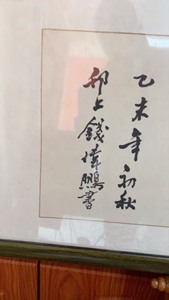 乙未年初秋
邗上錢偉鵬書